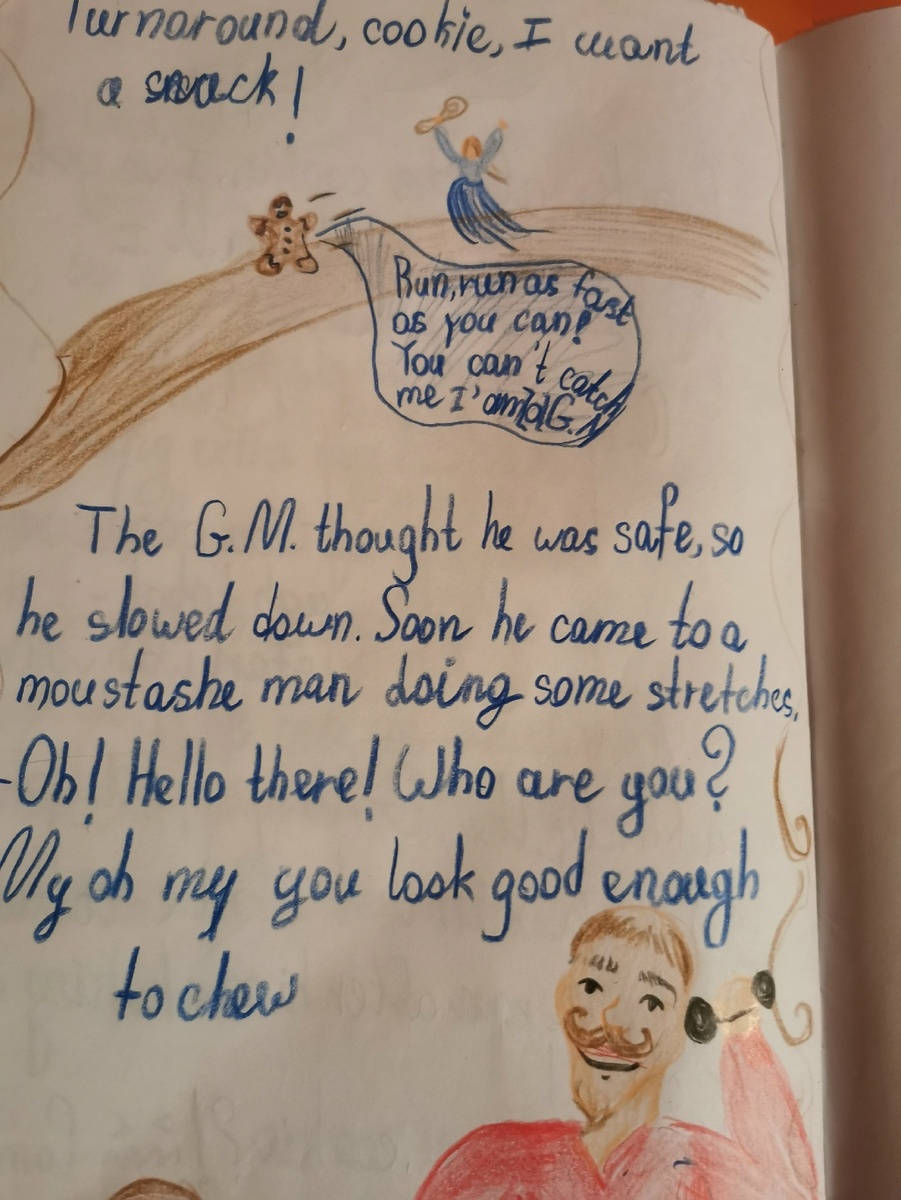 Turnaround, cookie, I want
a snack!
Run, run as fast
as you can!
You can't catch
me I'am G.
The G.M. thought he was safe, so
he slowed down. Soon he came to a
moustashe man doing some stretches.
-Oh! Hello there! Who are you?
My oh my you look good enough
to chew